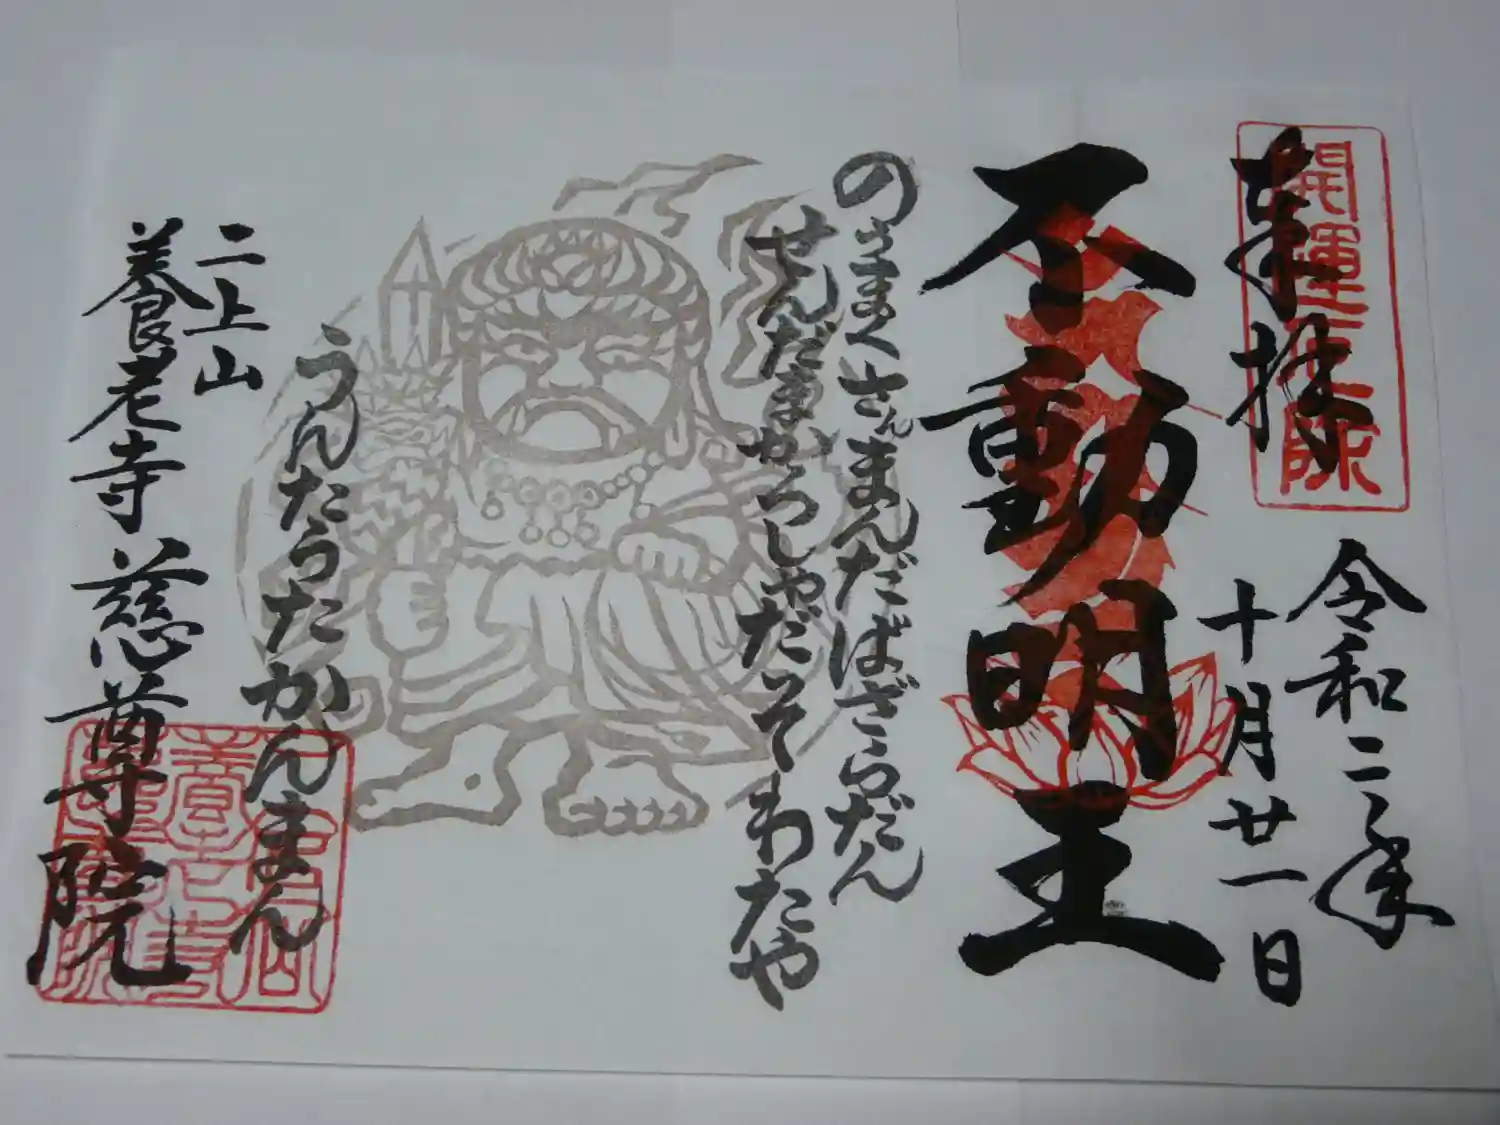 奉拝
開運大師
令和二年
十月廿一日
不動明王
のうまくさんまんだばざらだん
せんだまかろしゃだそわたや
うんたらたかんまん
二上山
養老寺 慈尊院